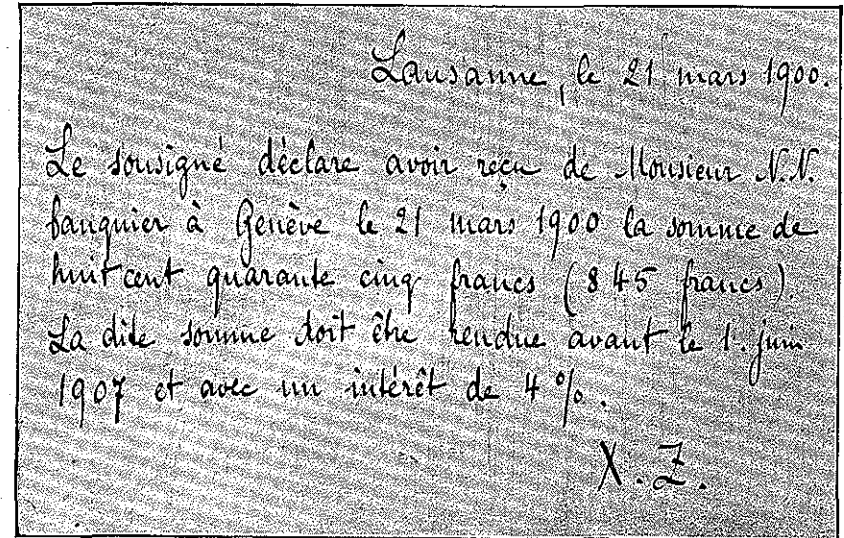 Lausanne, le 21 mars 1900.
Le sousigné déclare avoir reçu de Monsieur N.N.
banquier à Genève le 21 mars 1900 la somme de
huit cent quarante cinq francs (845 francs).
La dite somme doit être rendue avant le 1. juin
1907 et avec un intérêt de 4 %.
X. Z.